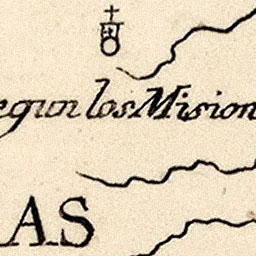 egun los Mision
AS